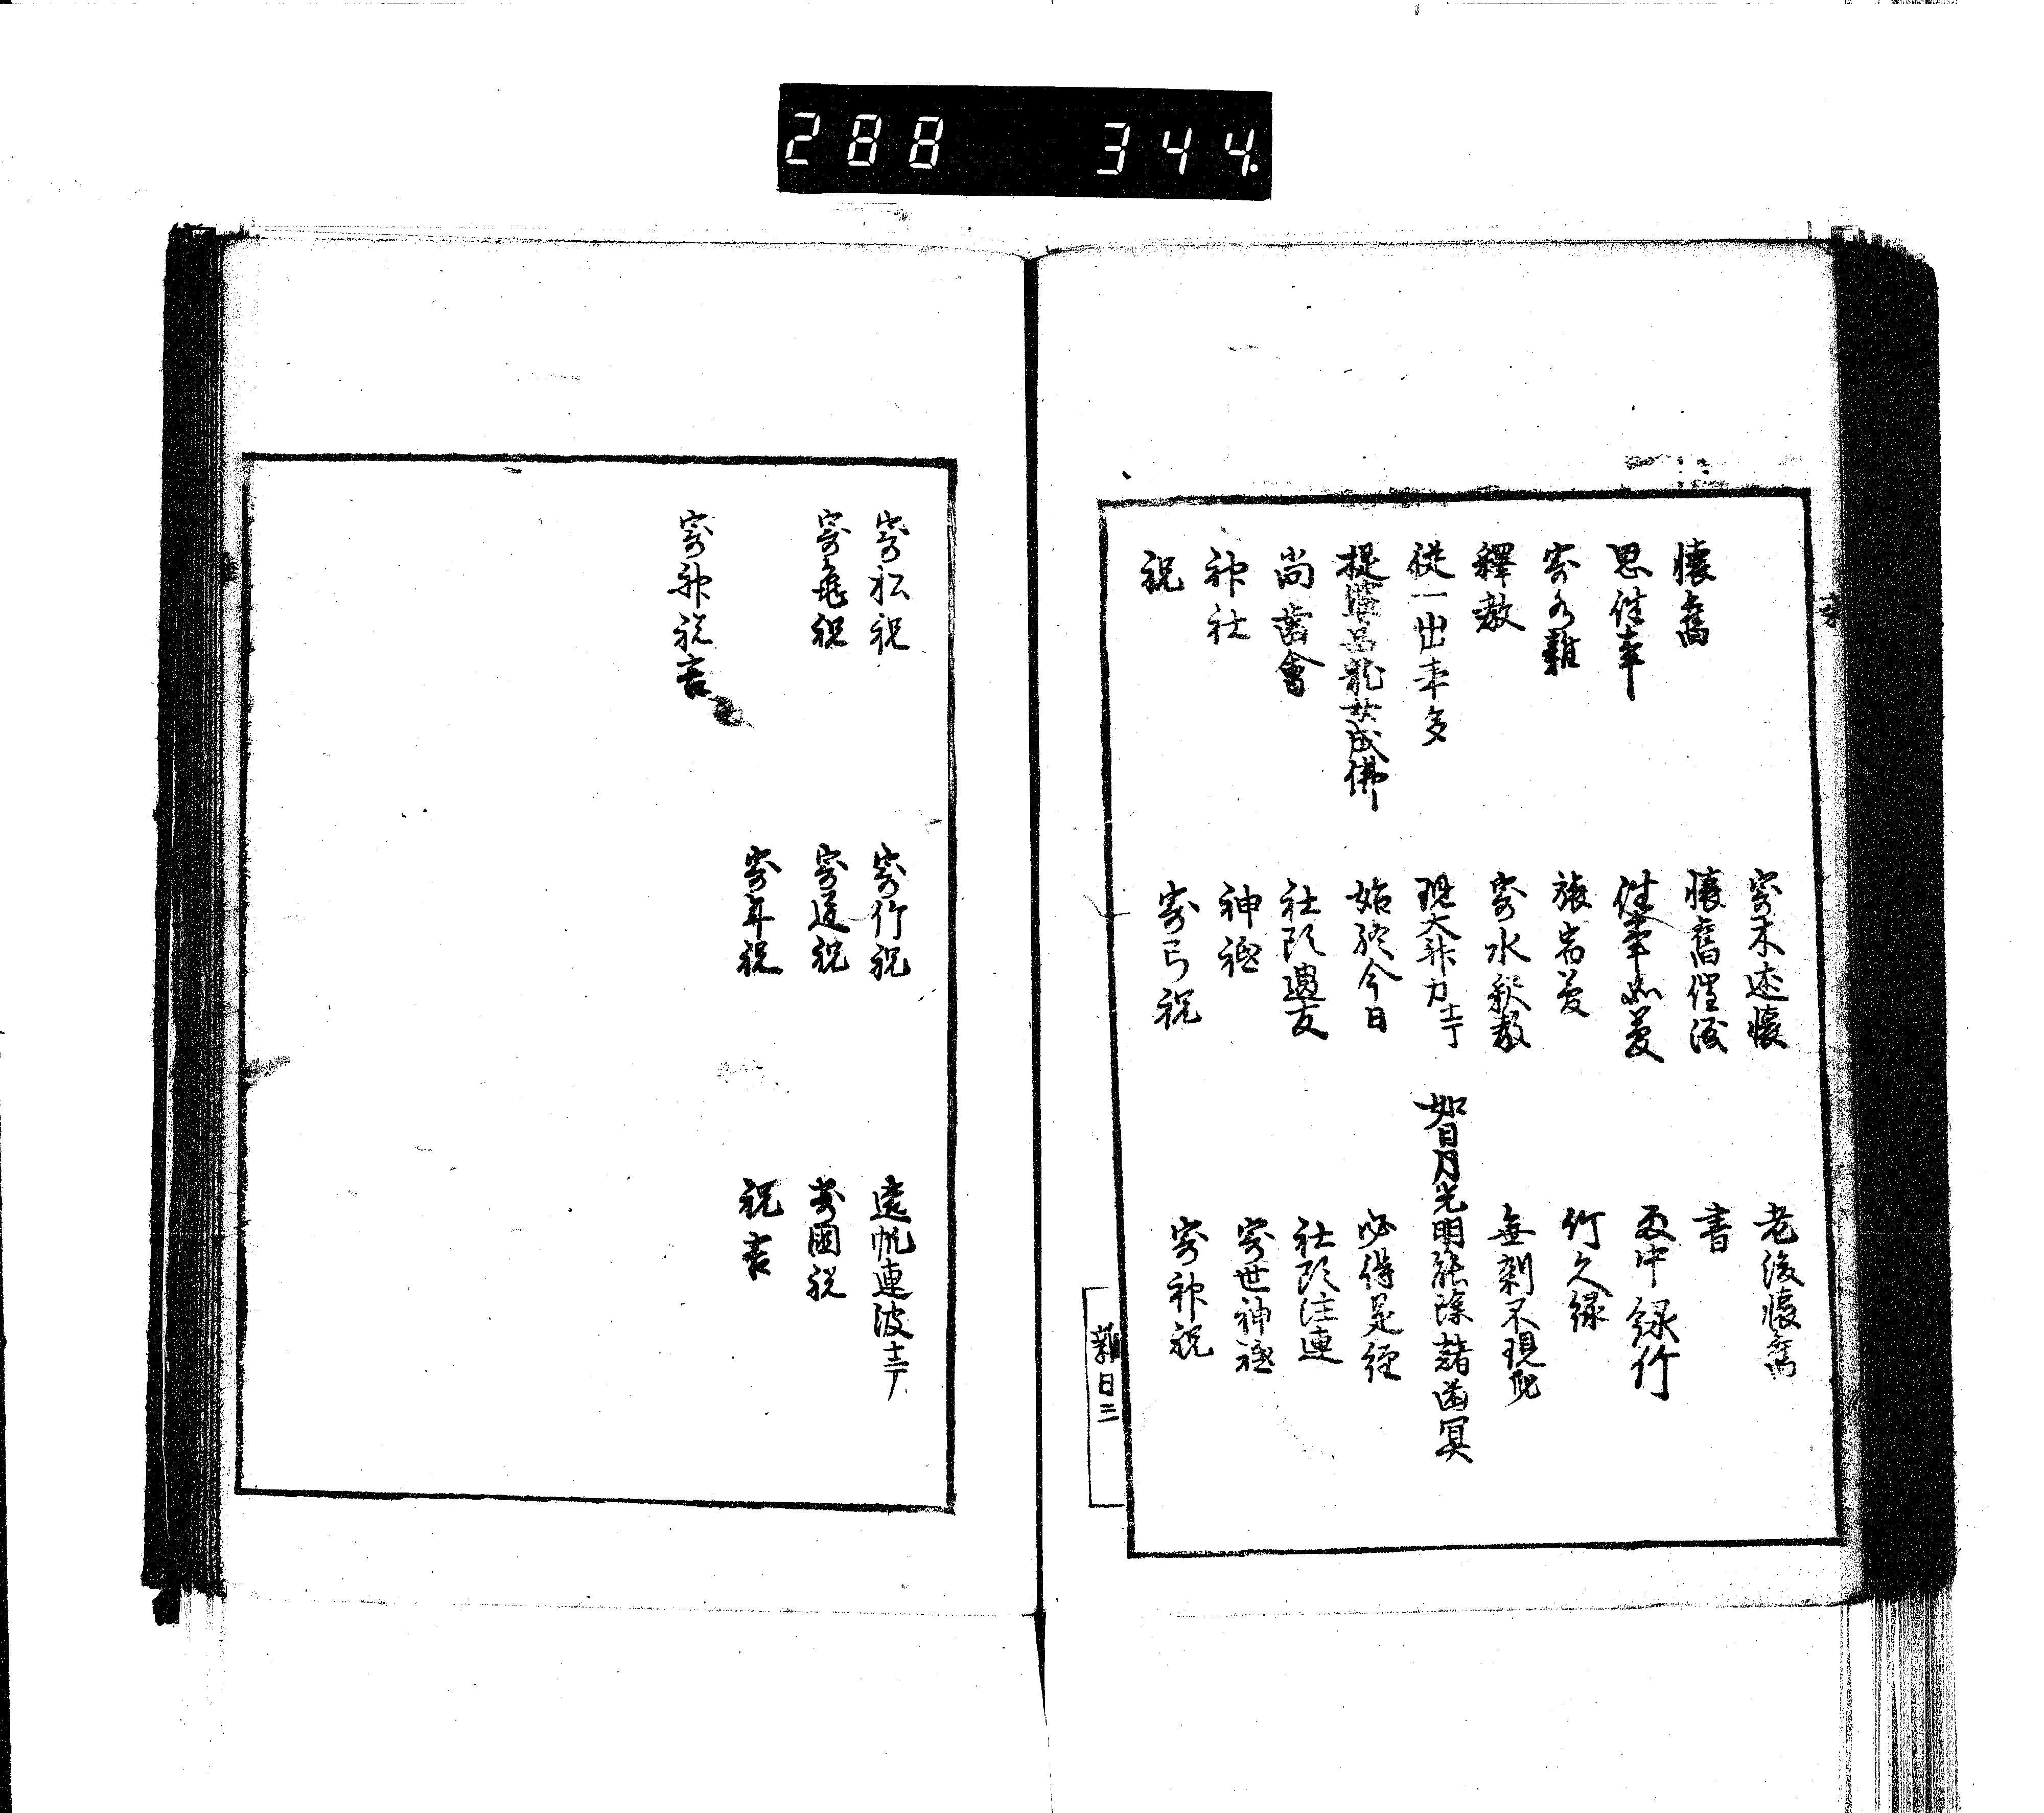 288 344.
寄木述懐 老後懐舊
懐舊 懐舊催涙 書
思往事 往事如夢 雨中緑竹
寄名雜 旅宿夢 竹久緑
釋教 寄水釈教 無刹不現身
従一出来多 現大神力 如日月光明能除諸幽冥
提婆品龍女成佛 始終今日 必得是経
尚歯會 社頭遇友 社頭注連
神社 神祇 寄世神祇
祝 寄弓祝 寄神祝
雜目三
寄松祝 寄竹祝 遠帆連波
寄亀祝 寄道祝 寄國祝
寄年祝 祝言
寄神祝言